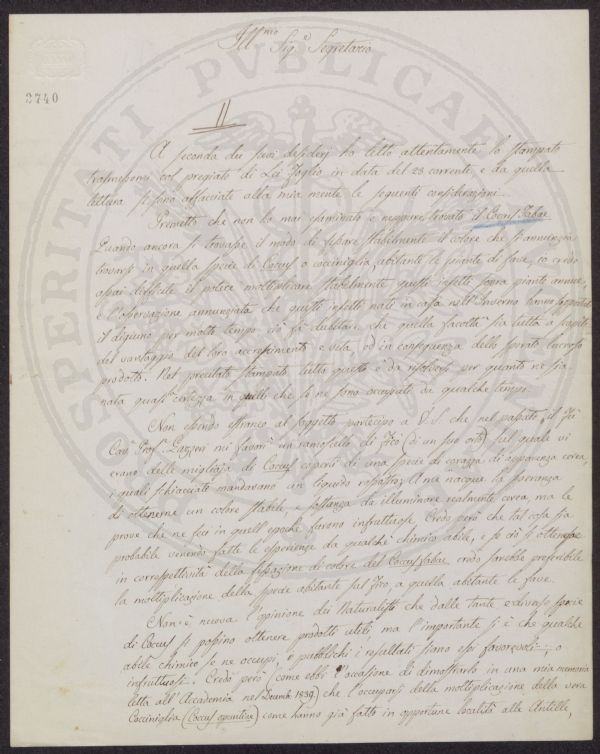 Ill.mo Sig.e Segretario
2740
A seconda dei suoi desiderj ho letto attentamente lo stampato
trasmessomi col pregiato di Lei foglio in data del 28 corrente, e da quella
lettura si sono affacciate alla mia mente le seguenti considerazioni.
Premetto che non ho mai esaminato e neppure trovato il Coccus fabae.
Quando ancora si trovasse il modo di fissare stabilmente il colore che si annunzia
trovarsi in quella specie di Coccus o cocciniglia, abitante le piante di fave, io credo
assai difficile il potere moltiplicare stabilmente questi insetti sopra piante annue,
e l'osservazione annunziata che questi insetti nati in casa nell'Inverno
il digiuno per molto tempo ciò fa dubitare che quella facoltà sia tutta a scapito
del vantaggio del loro accrescimento e vita, ed in conseguenza dello sperato lucroso
prodotto. Nel precitato stampato tutto questo è da risolversi per quanto ne sia
nata quasi certezza in quelli che se ne sono occupati da qualche tempo.
Non essendo estraneo al soggetto partecipo a V. S. che nel passato il fu
Cav.e Prof. Lazzeri mi favorì un ramoscello di Fico (di un suo orto) sul quale vi
erano delle migliaja di Coccus coperti di una specie di corazza di apparenza cerea,
i quali schiacciati mandavano un liquido rossastro; A me nacque la speranza
di ottenerne un colore stabile, e sostanza da illuminare realmente cerea, ma le
prove che ne feci in quell'epoche furono infruttuose. Credo però che tal cosa sia
probabile venendo fatte le esperienze da qualche chimico abile, e se ciò si ottenesse
in correspettività della fissazione di colore del Coccus fabae, credo sarebbe preferibile
la moltiplicazione della specie abitante sul Fico, a quella abitante le fave.
Non è nuova l'opinione dei Naturalisti che dalle tante e diverse specie
di Coccus si possino ottenere prodotti utili, ma l'importante si è che qualche
abile chimico se ne occupi, e pubblichi i resultati siano essi favorevoli o
infruttuosi. Credo però (come ebbi l'occasione di dimostrarlo in una mia memoria
letta all'Accademia nel Decembre 1839) che l'occuparsi della moltiplicazione della vera
Cocciniglia (Coccus opuntiae) come hanno già fatto in opportune località alle Antille,